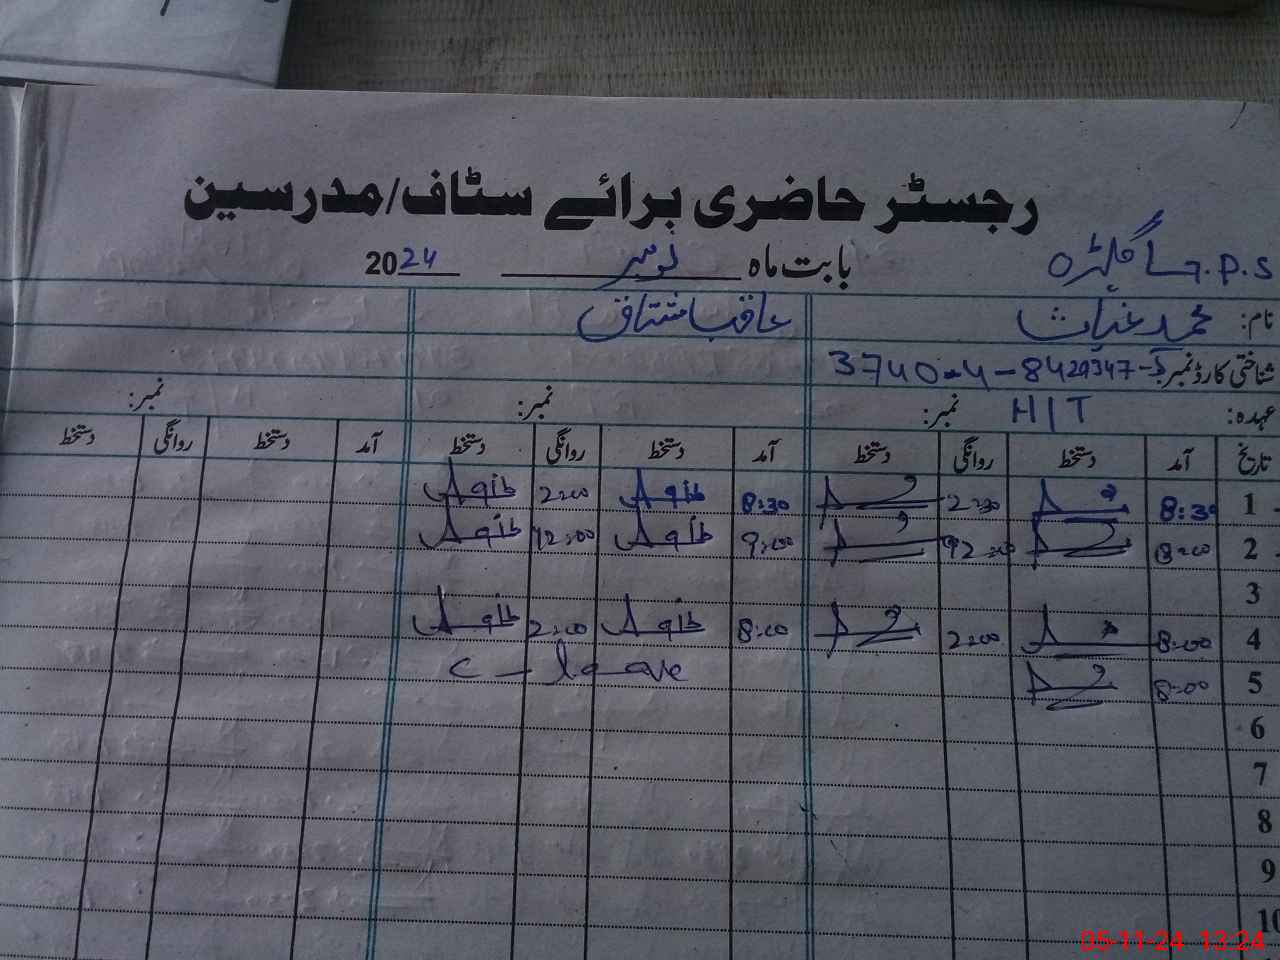 رجسٹر حاضری برائے سٹاف/مدرسین
G.P.S
بابت ماہ نومبر 2024
نام: محمد غیاث عاقب اشتاق
شناختی کارڈ نمبر: 3740.4-8429347-
عہدہ: H/T نمبر: نمبر: نمبر:
تاریخ آمد دستخط روانگی دستخط آمد دستخط روانگی دستخط آمد دستخط روانگی دستخط
1 8:30 2:30 8:30 Aqib 2:00 Aqib
2 8:00 12:00 9:00 Aqib 12:00 Aqib
3
4 8:00 2:00 8:00 Aqib 2:00 Aqib
5 8:00 C-leave
6
7
8
9
10
05-11-24 13:24